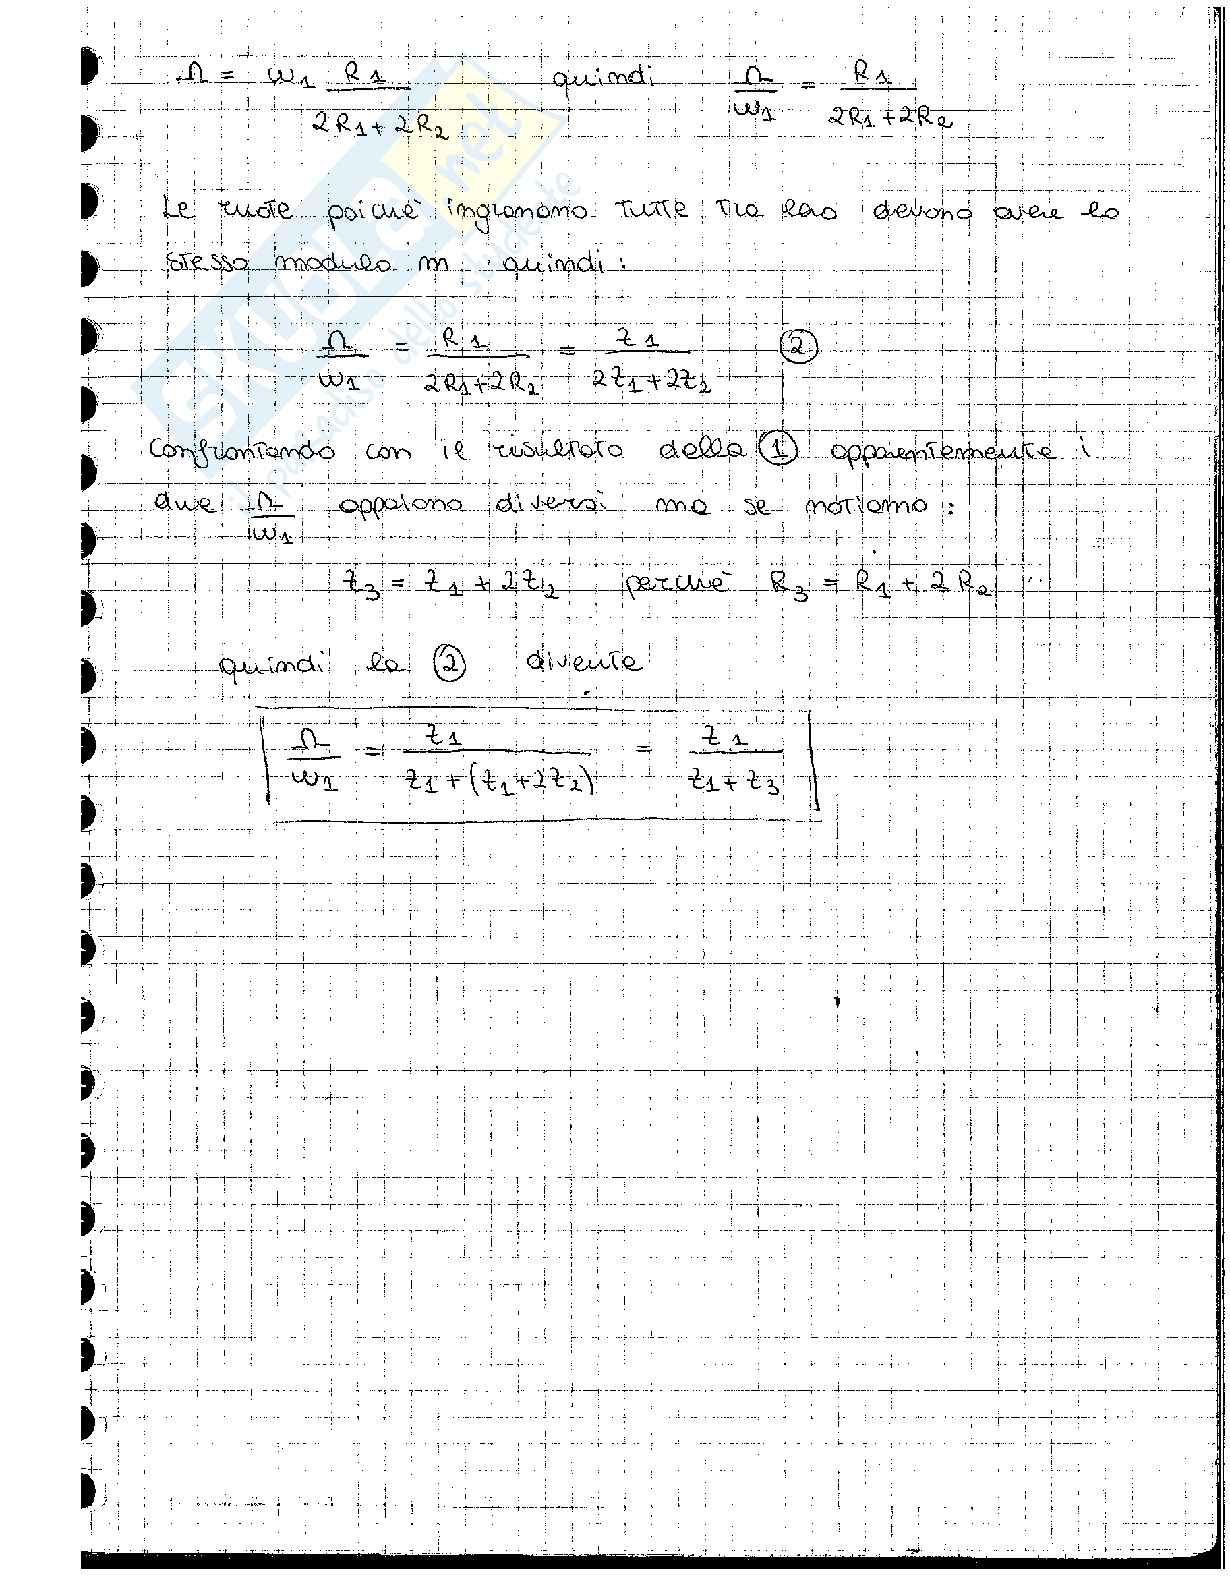 Ω = ω1 R1 / (2R1 + 2R2) quindi Ω/ω1 = R1 / (2R1 + 2R2)
Le ruote poichè ingranano tutte tra loro devono avere lo
stesso modulo m quindi:
Ω/ω1 = R1 / (2R1+2R2) = Z1 / (2Z1+2Z2) ②
Confrontando con il risultato della ① apparentemente i
due Ω/ω1 appaiono diversi ma se notiamo:
Z3 = Z1 + 2Z2 perchè R3 = R1 + 2R2
quindi la ② diventa
Ω/ω1 = Z1 / (Z1+(Z1+2Z2)) = Z1 / (Z1+Z3)
SKUOLA.net